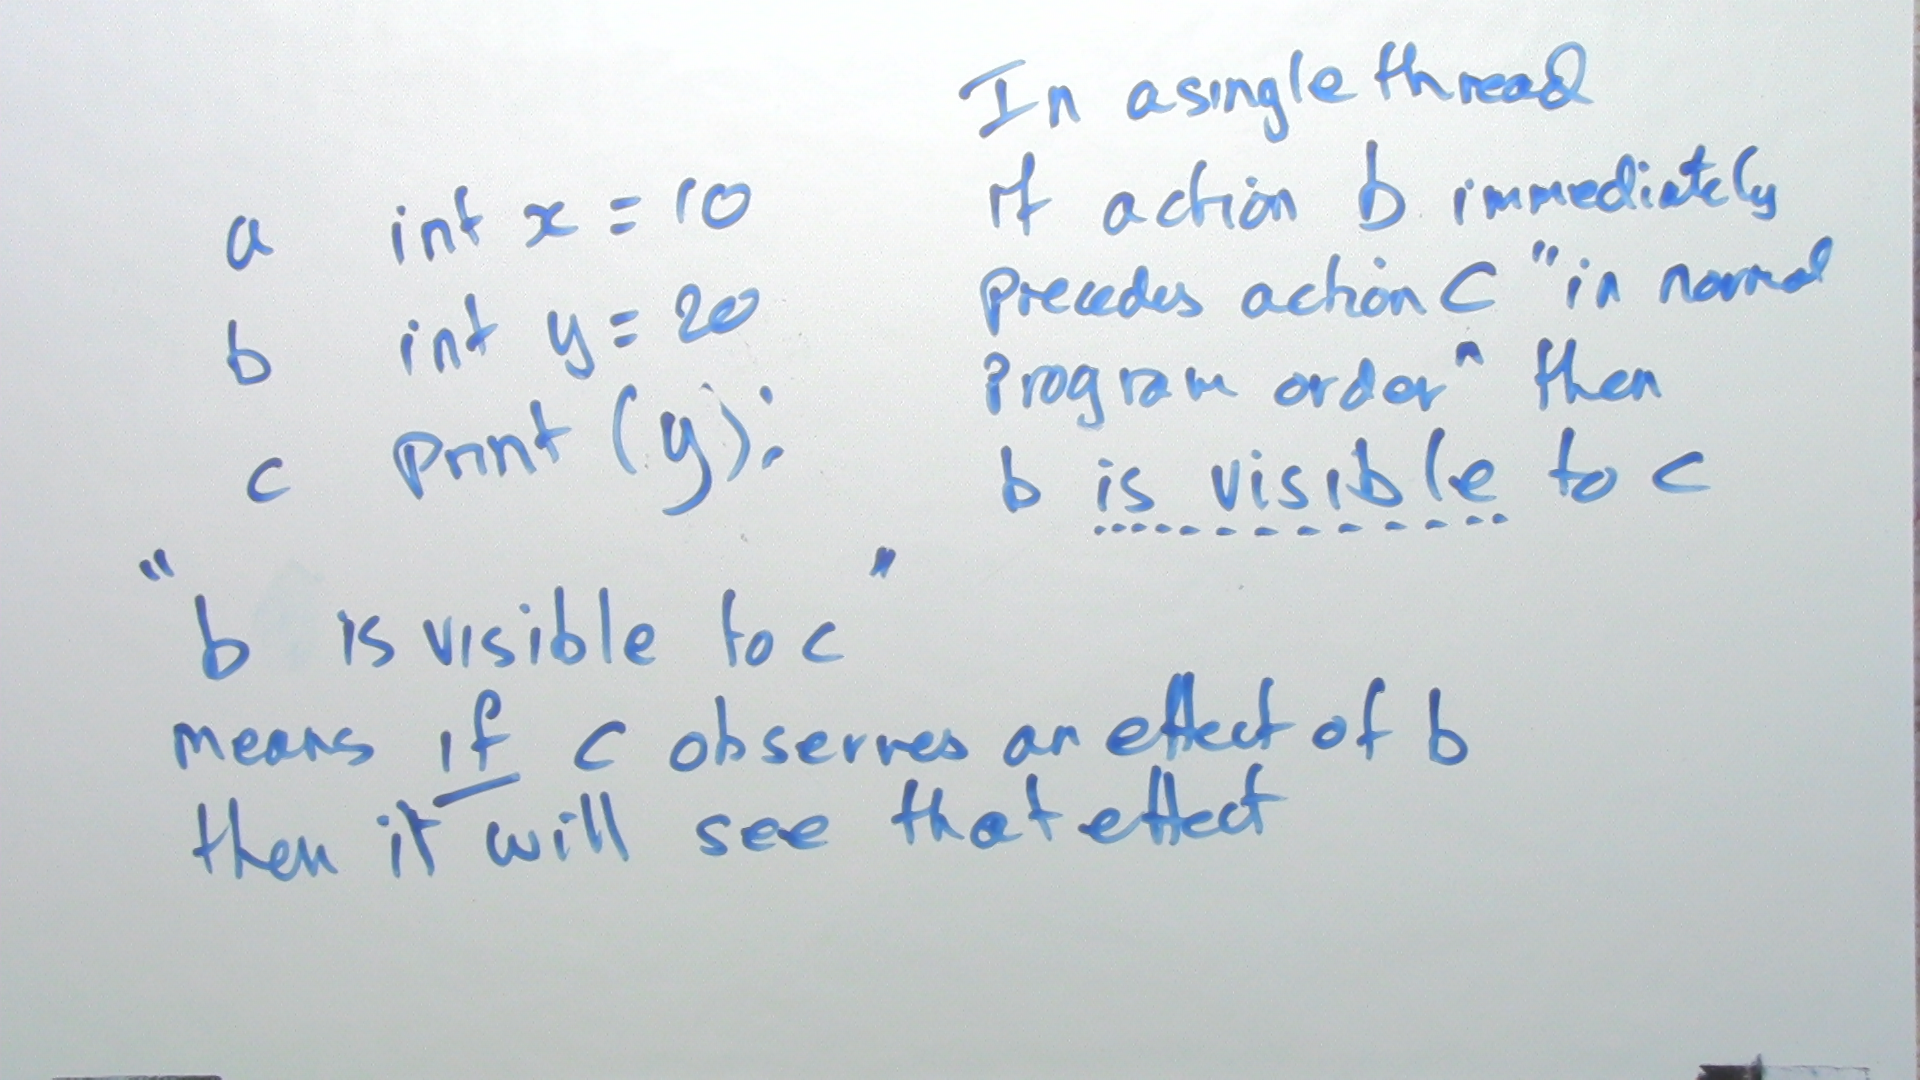 a int x = 10
b int y = 20
c print (y);
In a single thread
if action b immediately
precedes action C "in normal
program order" then
b is visible to c
"b is visible to c"
means if c observes an effect of b
then it will see that effect